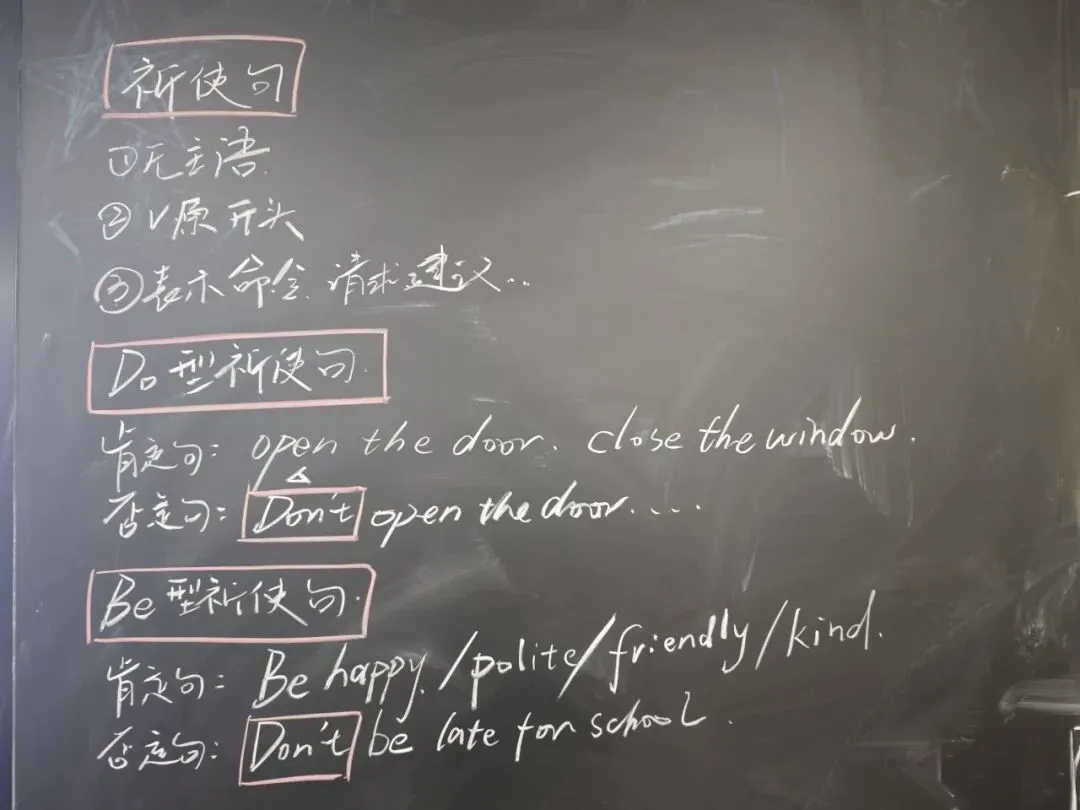 祈使句
①无主语.
②V原开头
③表示命令、请求、建议...
Do型祈使句.
肯定句: open the door. close the window.
否定句: Don't open the door.....
Be型祈使句.
肯定句: Be happy./polite/friendly/kind.
否定句: Don't be late for school.